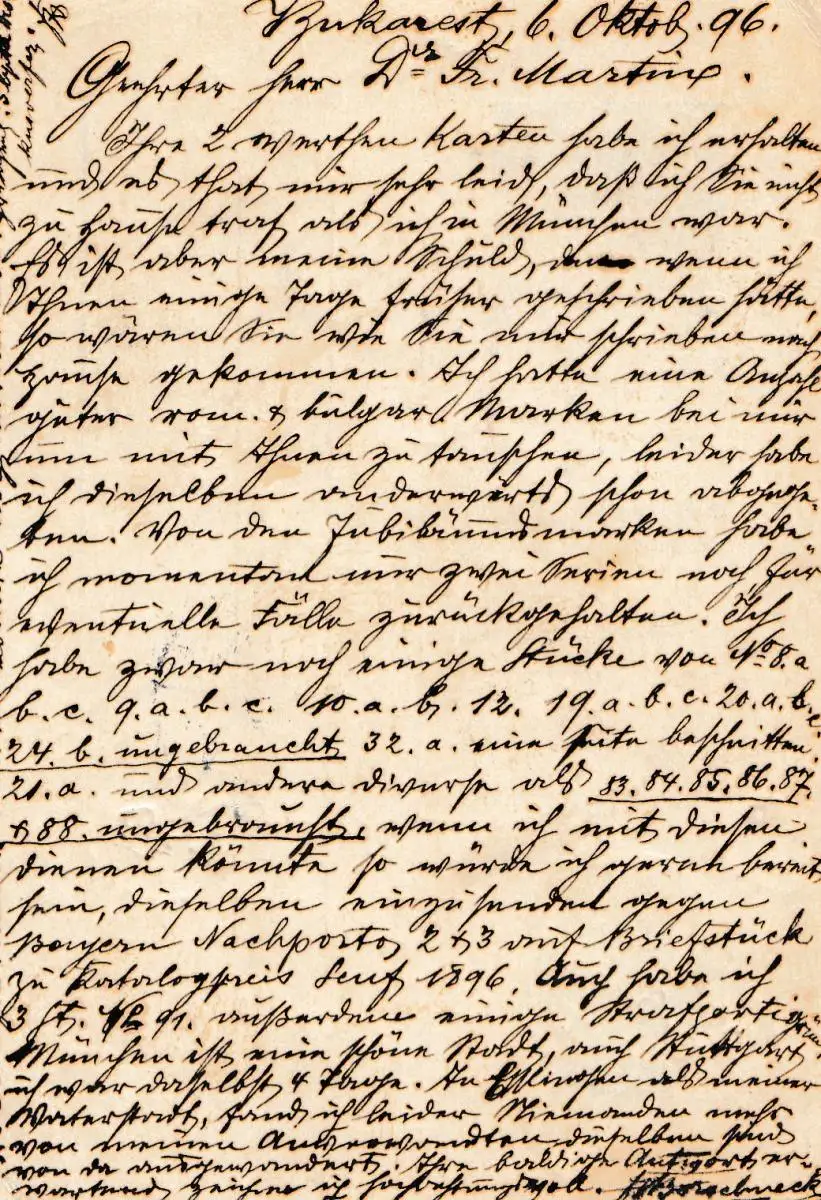 Bukarest, 6. Oktob. 96.
Geehrter Herr Dr. Fr. Martin.
Ihre 2 werthen Karten habe ich erhalten
und es that mir sehr leid, daß ich Sie nicht
zu Hause traf als ich in München war.
Es ist aber meine Schuld, wenn ich
Ihnen einige Tage früher geschrieben hätte,
so wären Sie wie Sie mir schrieben nach
Hause gekommen. Ich hatte eine Anzahl
guter rom. & bulgar. Marken bei mir
um mit Ihnen zu tauschen, leider habe
ich dieselben anderwärts schon abgege-
ben. Von den Jubiläumsmarken habe
ich momentan nur zwei Serien noch für
eventuelle Fälle zurückgehalten. Ich
habe zwar noch einige Stücke von No 8. a
b. c. 9. a. b. c. 10. a. b. 12. 19. a. b. c. 20. a. b. c.
24. b. ungebraucht 32. a. eine Seite beschnitten
21. a. und andere diverse als 83. 84. 85. 86. 87.
& 88. ungebraucht, wenn ich mit diesen
dienen könnte so würde ich gerne bereit
sein, dieselben einzusenden gegen
Bayern Nachporto 2 & 3 auf Briefstück
zu Katalogpreis Senf 1896. Auch habe ich
3 St. No 91. außerdem einige Strafporti
München ist eine schöne Stadt, auch Stuttgart
ich war daselbst 4 Tage. In Esslingen als meiner
Vaterstadt, fand ich leider Niemanden mehr
von meinen Anverwandten dieselben sind
von da ausgewandert. Ihre baldige Antwort er-
wartend zeichne ich hochachtungsvoll.